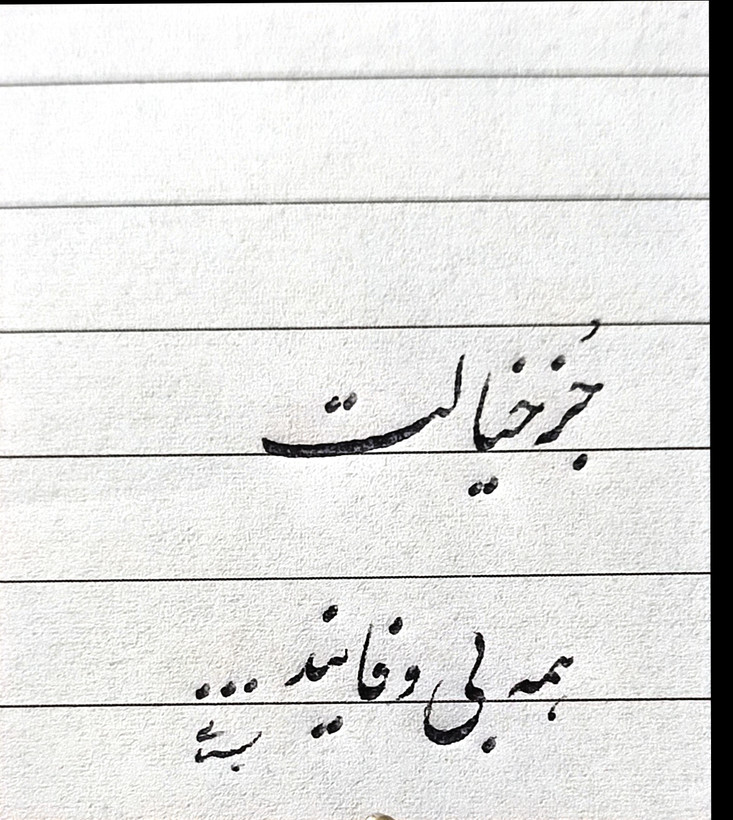 جُز خیالت
همه بی وفایند ...